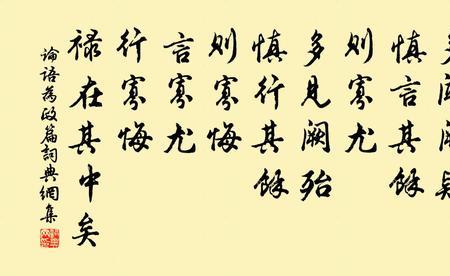 慎言其餘
則寡尤
多見闕殆
慎行其餘
則寡悔
言寡尤
行寡悔
禄在其中矣
論語為政篇詞典網集